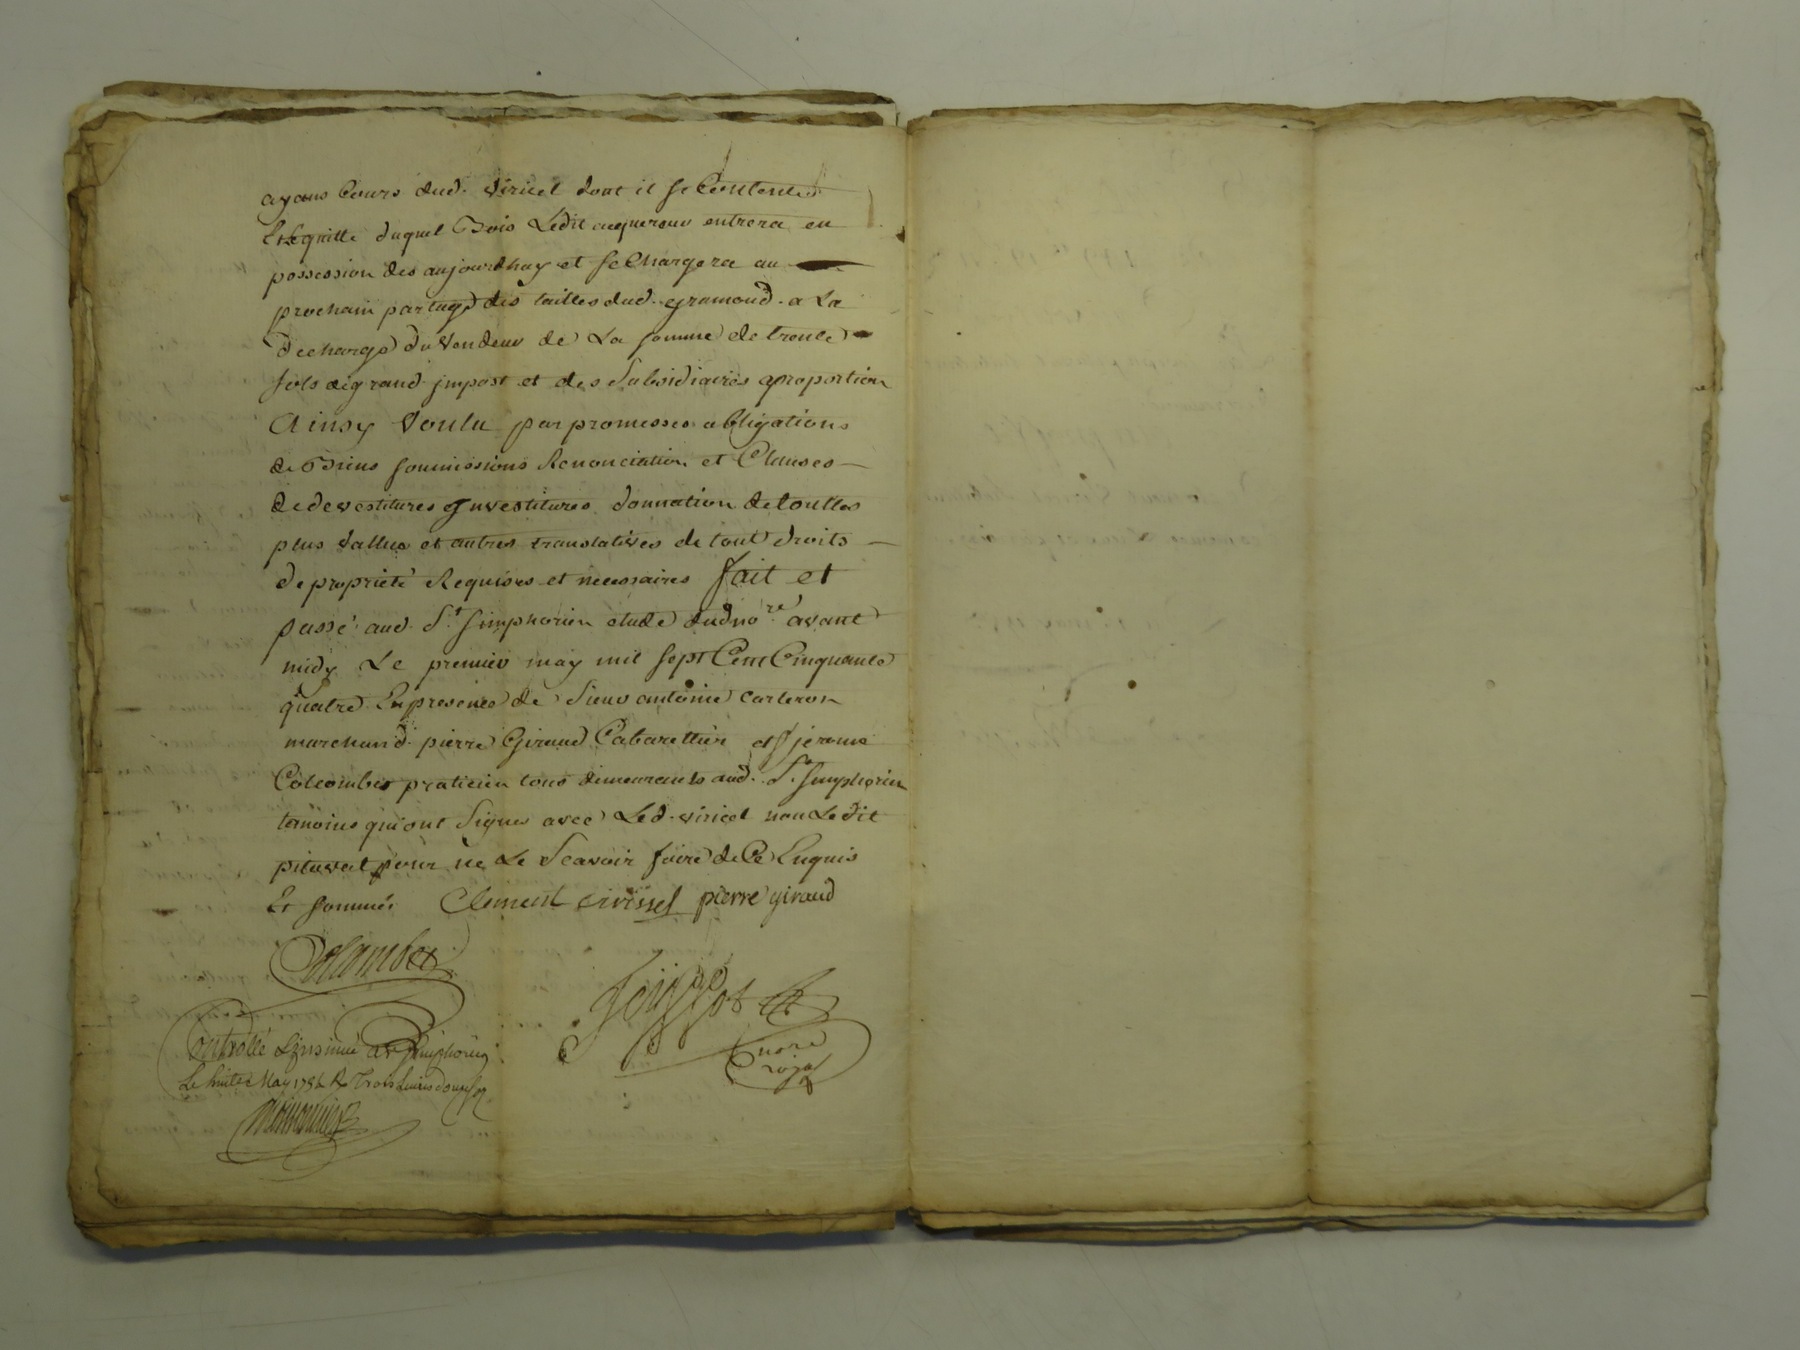 ayans Cours dud. Viricel dont il se Contente
Et le quitte duquel Bois Ledit acquereur entrera en
possession des aujourdhuy et se Chargera au
prochain partage des tailles dud. gramond. a La
decharge du Vendeur de La somme de trente
sols de grand jmpost et des Subsidiaires aproportion
Ainsy Voulu par promesses obligations
de Biens soumissions Renonciation et Clauses
de devestitures Jnvestitures donnation de touttes
plus Vallue et autres translatives de tout droits
de propriété Requises et necessaires fait et
passé aud. St. Simphorien etude dud no.re avant
midy Le premier may mil sept Cent Cinquante
quatre En presence de Sieur antoine carteron
marchand pierre Giraud Cabarettier et jerome
Colcombet praticien tous demeurants aud. St. Simphorien
temoins qui ont Signes avec Led. viricel non Ledit
pitaval pour ne Le Scavoir faire de Ce Enquis
Et sommés Clement virissel pierre giraud
Colcombet
nore
royal
Controllé & Insinué a St Simphorien
Le huit May 1754 R Trois Livres douze s.